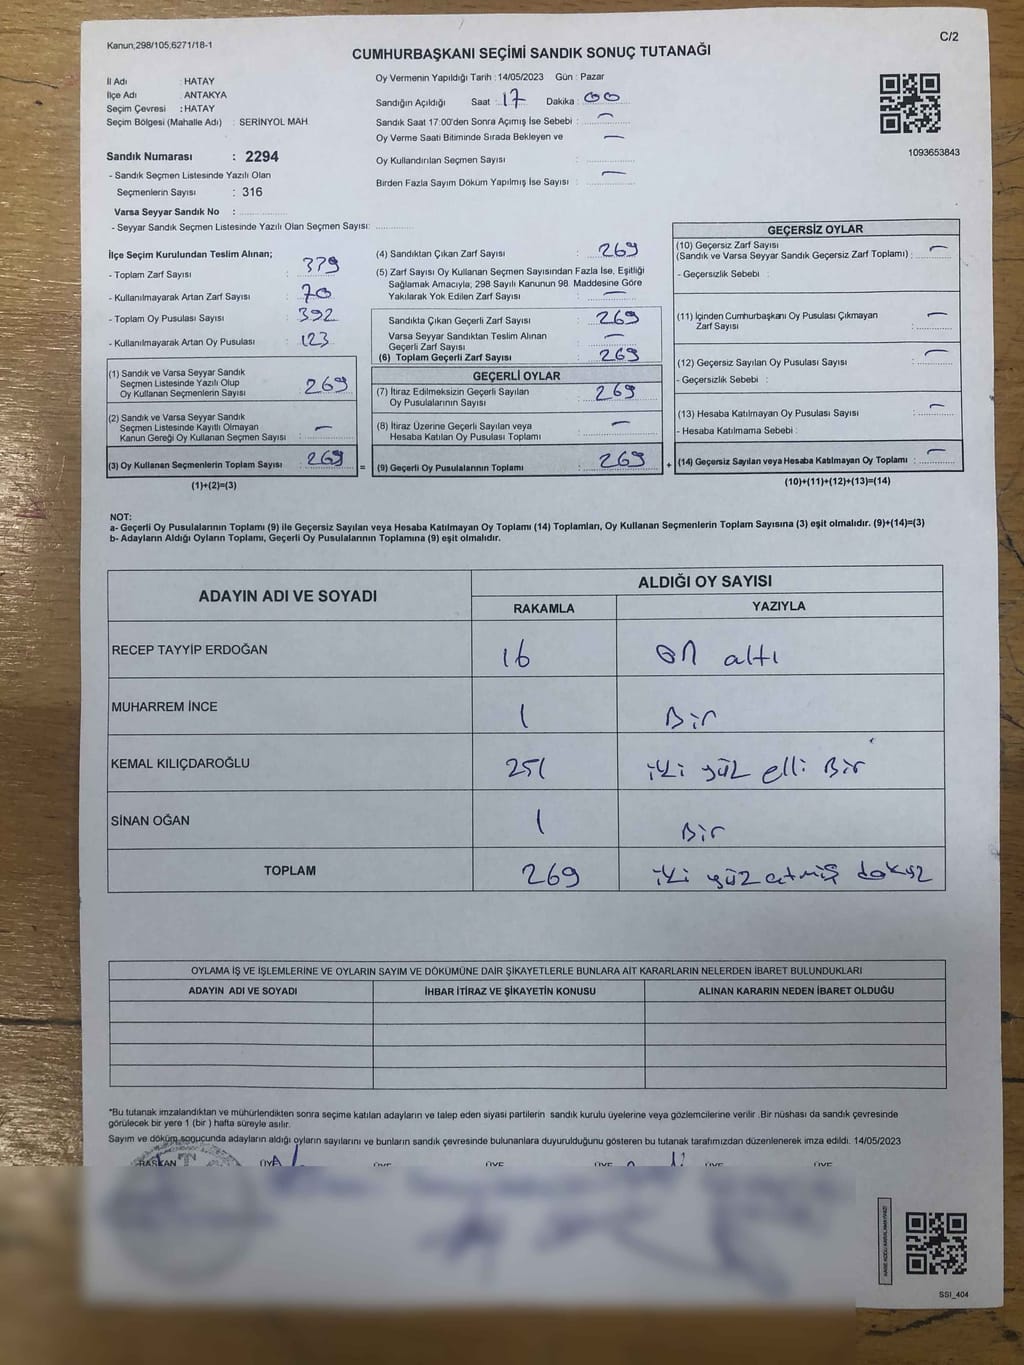 Kanun,298/105,6271/18-1
C/2
CUMHURBAŞKANI SEÇİMİ SANDIK SONUÇ TUTANAĞI
İl Adı : HATAY
İlçe Adı : ANTAKYA
Seçim Çevresi : HATAY
Seçim Bölgesi (Mahalle Adı) : SERİNYOL MAH.
Sandık Numarası : 2294
- Sandık Seçmen Listesinde Yazılı Olan
Seçmenlerin Sayısı : 316
Varsa Seyyar Sandık No :
- Seyyar Sandık Seçmen Listesinde Yazılı Olan Seçmen Sayısı:
Oy Vermenin Yapıldığı Tarih : 14/05/2023 Gün : Pazar
Sandığın Açıldığı Saat : 17 Dakika : 00
Sandık Saat 17:00'den Sonra Açımış İse Sebebi : —
Oy Verme Saati Bitiminde Sırada Bekleyen ve —
Oy Kullandırılan Seçmen Sayısı :
Birden Fazla Sayım Döküm Yapılmış İse Sayısı : —
1093653843
İlçe Seçim Kurulundan Teslim Alınan;
- Toplam Zarf Sayısı : 379
- Kullanılmayarak Artan Zarf Sayısı : 70
- Toplam Oy Pusulası Sayısı : 392
- Kullanılmayarak Artan Oy Pusulası : 123
(1) Sandık ve Varsa Seyyar Sandık
Seçmen Listesinde Yazılı Olup
Oy Kullanan Seçmenlerin Sayısı : 269
(2) Sandık ve Varsa Seyyar Sandık
Seçmen Listesinde Kayıtlı Olmayan
Kanun Gereği Oy Kullanan Seçmen Sayısı : —
(3) Oy Kullanan Seçmenlerin Toplam Sayısı : 269
(1)+(2)=(3)
(4) Sandıktan Çıkan Zarf Sayısı : 269
(5) Zarf Sayısı Oy Kullanan Seçmen Sayısından Fazla İse, Eşitliği
Sağlamak Amacıyla; 298 Sayılı Kanunun 98. Maddesine Göre
Yakılarak Yok Edilen Zarf Sayısı : —
Sandıkta Çıkan Geçerli Zarf Sayısı : 269
Varsa Seyyar Sandıktan Teslim Alınan
Geçerli Zarf Sayısı : —
(6) Toplam Geçerli Zarf Sayısı : 269
GEÇERLİ OYLAR
(7) İtiraz Edilmeksizin Geçerli Sayılan
Oy Pusulalarının Sayısı : 269
(8) İtiraz Üzerine Geçerli Sayılan veya
Hesaba Katılan Oy Pusulası Toplamı : —
= (9) Geçerli Oy Pusulalarının Toplamı : 269 +
GEÇERSİZ OYLAR
(10) Geçersiz Zarf Sayısı
(Sandık ve Varsa Seyyar Sandık Geçersiz Zarf Toplamı) : —
- Geçersizlik Sebebi :
(11) İçinden Cumhurbaşkanı Oy Pusulası Çıkmayan
Zarf Sayısı : —
(12) Geçersiz Sayılan Oy Pusulası Sayısı : —
- Geçersizlik Sebebi :
(13) Hesaba Katılmayan Oy Pusulası Sayısı : —
- Hesaba Katılmama Sebebi :
(14) Geçersiz Sayılan veya Hesaba Katılmayan Oy Toplamı : —
(10)+(11)+(12)+(13)=(14)
NOT:
a- Geçerli Oy Pusulalarının Toplamı (9) ile Geçersiz Sayılan veya Hesaba Katılmayan Oy Toplamı (14) Toplamları, Oy Kullanan Seçmenlerin Toplam Sayısına (3) eşit olmalıdır. (9)+(14)=(3)
b- Adayların Aldığı Oyların Toplamı, Geçerli Oy Pusulalarının Toplamına (9) eşit olmalıdır.
ADAYIN ADI VE SOYADI ALDIĞI OY SAYISI
RAKAMLA YAZIYLA
RECEP TAYYİP ERDOĞAN 16 on altı
MUHARREM İNCE 1 Bir
KEMAL KILIÇDAROĞLU 251 iki yüz elli Bir
SİNAN OĞAN 1 Bir
TOPLAM 269 iki yüz atmış dokuz
OYLAMA İŞ VE İŞLEMLERİNE VE OYLARIN SAYIM VE DÖKÜMÜNE DAİR ŞİKAYETLERLE BUNLARA AİT KARARLARIN NELERDEN İBARET BULUNDUKLARI
ADAYIN ADI VE SOYADI İHBAR İTİRAZ VE ŞİKAYETİN KONUSU ALINAN KARARIN NEDEN İBARET OLDUĞU
*Bu tutanak imzalandıktan ve mühürlendikten sonra seçime katılan adayların ve talep eden siyasi partilerin sandık kurulu üyelerine veya gözlemcilerine verilir .Bir nüshası da sandık çevresinde
görülecek bir yere 1 (bir ) hafta süreyle asılır.
Sayım ve döküm sonucunda adayların aldığı oyların sayılarını ve bunların sandık çevresinde bulunanlara duyurulduğunu gösteren bu tutanak tarafımızdan düzenlenerek imza edildi. 14/05/2023
BAŞKAN ÜYE ÜYE ÜYE ÜYE ÜYE ÜYE
SSI_404